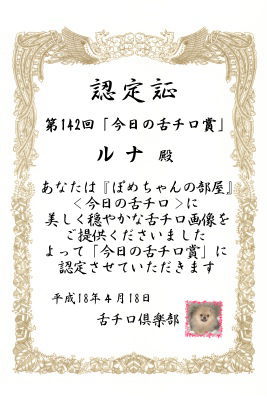 認定証
第142回「今日の舌チロ賞」
ルナ 殿
あなたは『ぽめちゃんの部屋』
<今日の舌チロ>に
美しく穏やかな舌チロ画像を
ご提供くださいました
よって「今日の舌チロ賞」に
認定させていただきます
平成18年4月18日
舌チロ倶楽部